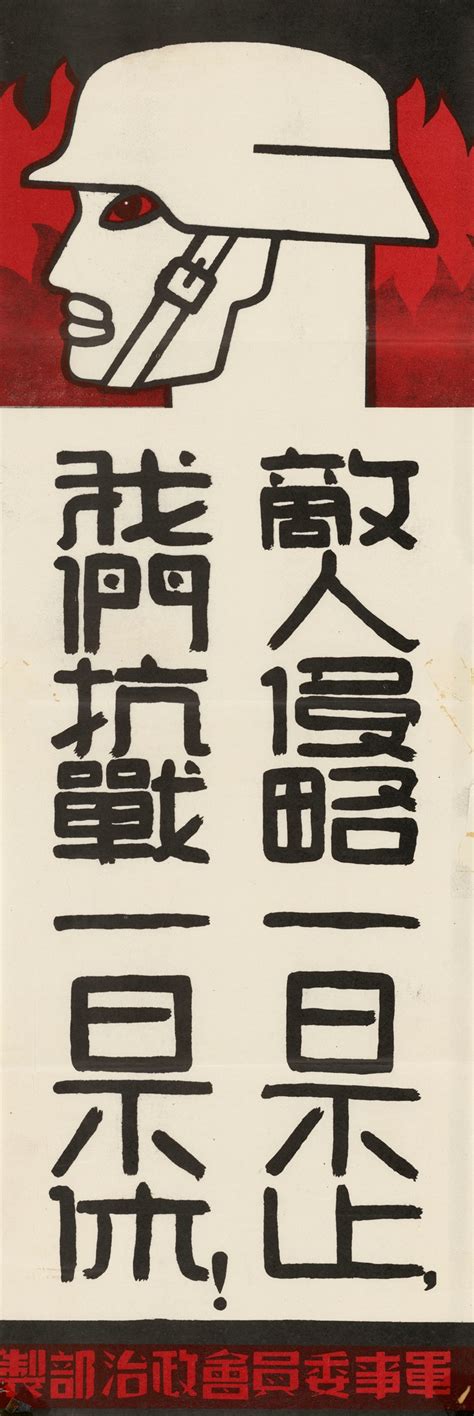 敵人侵略一日不止，
我們抗戰一日不休！
軍事委員會政治部製